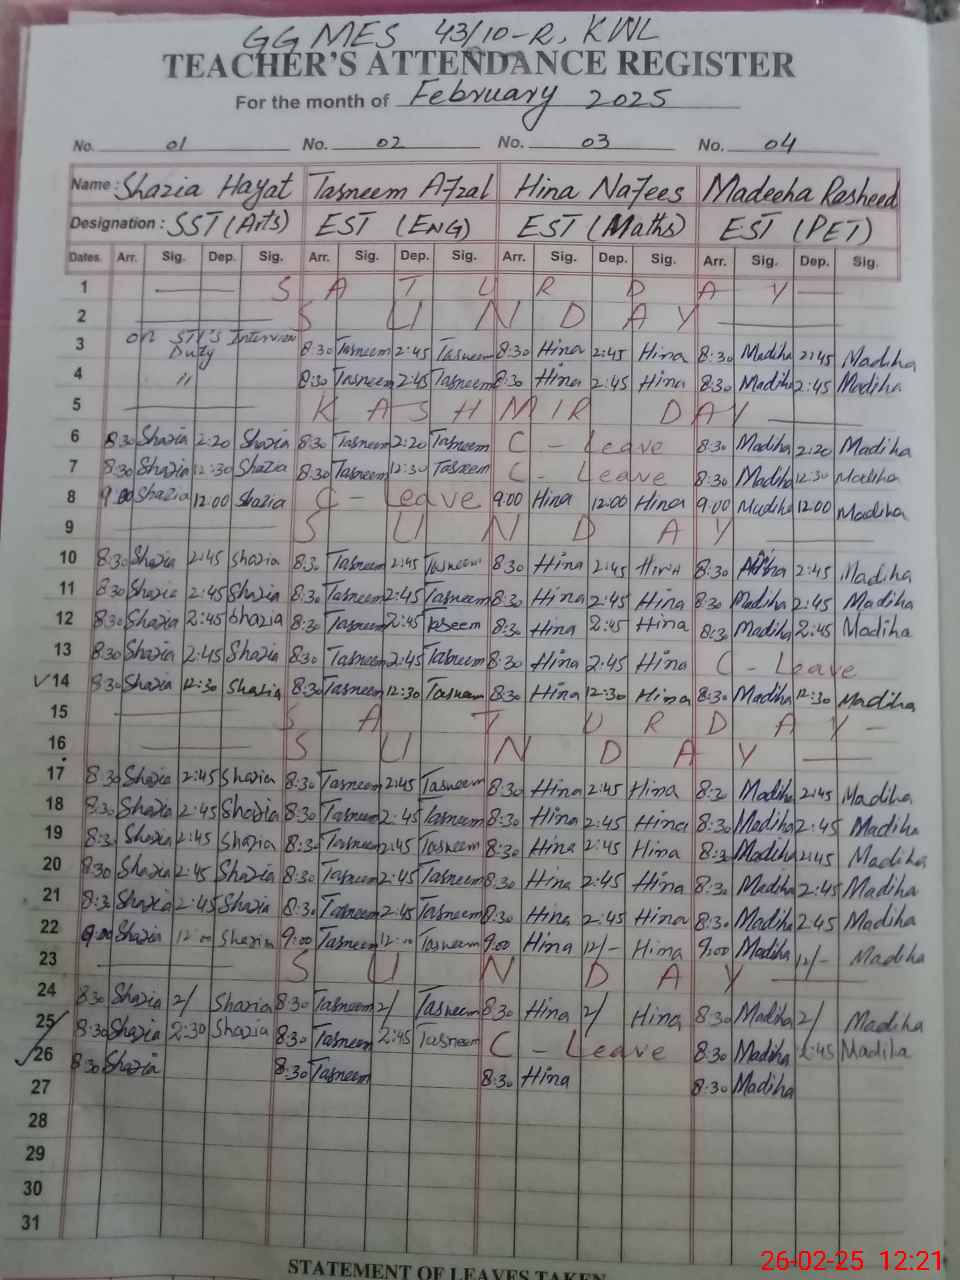 GGMES 43/10-R, KWL
TEACHER'S ATTENDANCE REGISTER
For the month of February 2025
No. 01 No. 02 No. 03 No. 04
Name : Shazia Hayat Tasneem Afzal Hina Nafees Madeeha Rasheed
Designation : SST (Arts) EST (ENG) EST (Maths) EST (PET)
Dates. Arr. Sig. Dep. Sig. Arr. Sig. Dep. Sig. Arr. Sig. Dep. Sig. Arr. Sig. Dep. Sig.
1 SATURDAY
2 SUNDAY
3 on STI's Interview Duty 8:30 Tasneem 2:45 Tasneem 8:30 Hina 2:45 Hina 8:30 Madiha 2:45 Madiha
4 " 8:30 Tasneem 2:45 Tasneem 8:30 Hina 2:45 Hina 8:30 Madiha 2:45 Madiha
5 KASHMIR DAY
6 8:30 Shazia 2:20 Shazia 8:30 Tasneem 2:20 Tasneem C - Leave 8:30 Madiha 2:20 Madiha
7 8:30 Shazia 12:30 Shazia 8:30 Tasneem 12:30 Tasneem C - Leave 8:30 Madiha 12:30 Madiha
8 9:00 Shazia 12:00 Shazia C - Leave 9:00 Hina 12:00 Hina 9:00 Madiha 12:00 Madiha
9 SUNDAY
10 8:30 Shazia 2:45 Shazia 8:30 Tasneem 2:45 Tasneem 8:30 Hina 2:45 Hina 8:30 2:45 Madiha
11 8:30 Shazia 2:45 Shazia 8:30 Tasneem 2:45 Tasneem 8:30 Hina 2:45 Hina 8:30 Madiha 2:45 Madiha
12 8:30 Shazia 2:45 Shazia 8:30 Tasneem 2:45 Taseem 8:30 Hina 2:45 Hina 8:30 Madiha 2:45 Madiha
13 8:30 Shazia 2:45 Shazia 8:30 Tasneem 2:45 Tasneem 8:30 Hina 2:45 Hina C - Leave
✓14 8:30 Shazia 12:30 Shazia 8:30 Tasneem 12:30 Tasneem 8:30 Hina 12:30 Hina 8:30 Madiha 12:30 Madiha
15 SATURDAY
16 SUNDAY
17 8:30 Shazia 2:45 Shazia 8:30 Tasneem 2:45 Tasneem 8:30 Hina 2:45 Hina 8:30 Madiha 2:45 Madiha
18 8:30 Shazia 2:45 Shazia 8:30 Tasneem 2:45 Tasneem 8:30 Hina 2:45 Hina 8:30 Madiha 2:45 Madiha
19 8:30 Shazia 2:45 Shazia 8:30 Tasneem 2:45 Tasneem 8:30 Hina 2:45 Hina 8:30 Madiha 2:45 Madiha
20 8:30 Shazia 2:45 Shazia 8:30 Tasneem 2:45 Tasneem 8:30 Hina 2:45 Hina 8:30 Madiha 2:45 Madiha
21 8:30 Shazia 2:45 Shazia 8:30 Tasneem 2:45 Tasneem 8:30 Hina 2:45 Hina 8:30 Madiha 2:45 Madiha
22 9:00 Shazia 12:00 Shazia 9:00 Tasneem 12:00 Tasneem 9:00 Hina 12/- Hina 9:00 Madiha 12/- Madiha
23 SUNDAY
24 8:30 Shazia 2/ Shazia 8:30 Tasneem 2/ Tasneem 8:30 Hina 2/ Hina 8:30 Madiha 2/ Madiha
25 8:30 Shazia 2:30 Shazia 8:30 Tasneem 2:45 Tasneem C - Leave 8:30 Madiha 2:45 Madiha
✓26 8:30 Shazia 8:30 Tasneem 8:30 Hina 8:30 Madiha
27
28
29
30
31
STATEMENT OF LEAVES TAKEN
26-02-25 12:21